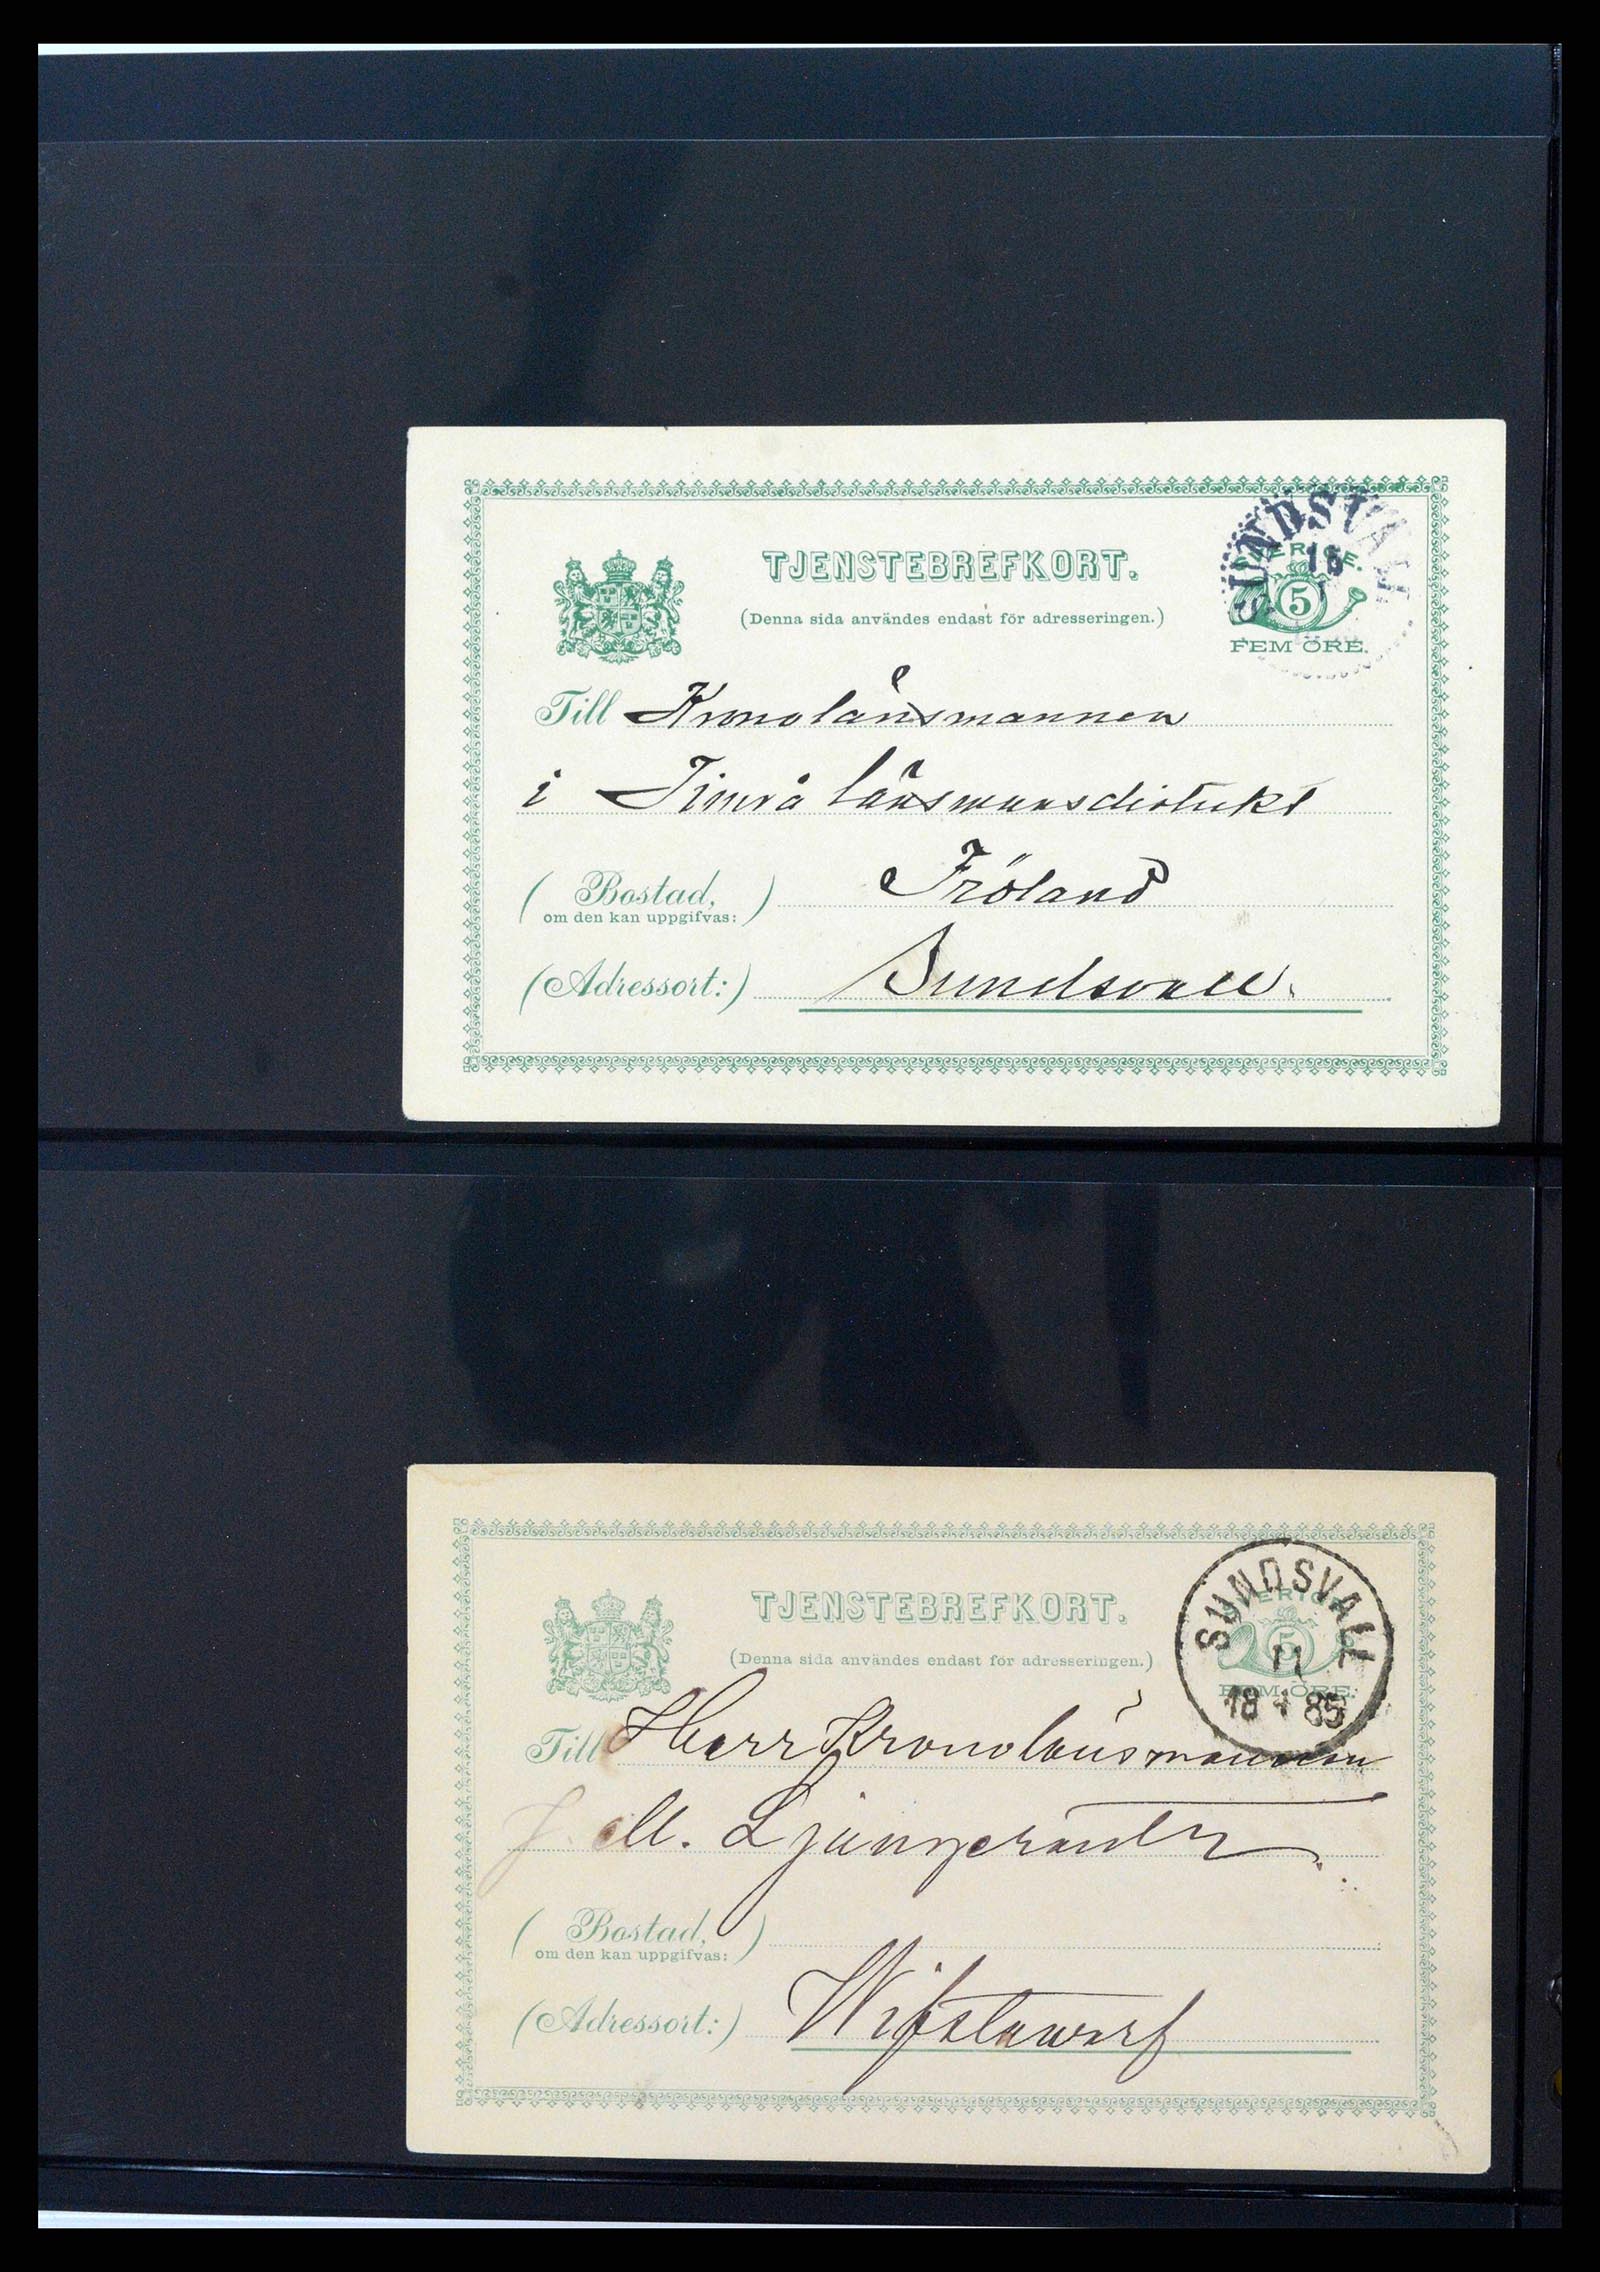 TJENSTEBREFKORT.
(Denna sida användes endast för adresseringen.)
SUNDSVALL
SVERIGE.
5
FEM ÖRE.
Till Kronolänsmannen
i Timrå länsmansdistrikt
(Bostad, om den kan uppgifvas:) Fröland
(Adressort:) Sundsvall.
TJENSTEBREFKORT.
(Denna sida användes endast för adresseringen.)
SUNDSVALL
11
18 85
SVERIGE
5
FEM ÖRE.
Till Herr Kronolänsmannen
J. M. Ljungerantz
(Bostad, om den kan uppgifvas:)
(Adressort:) Wifstawarf